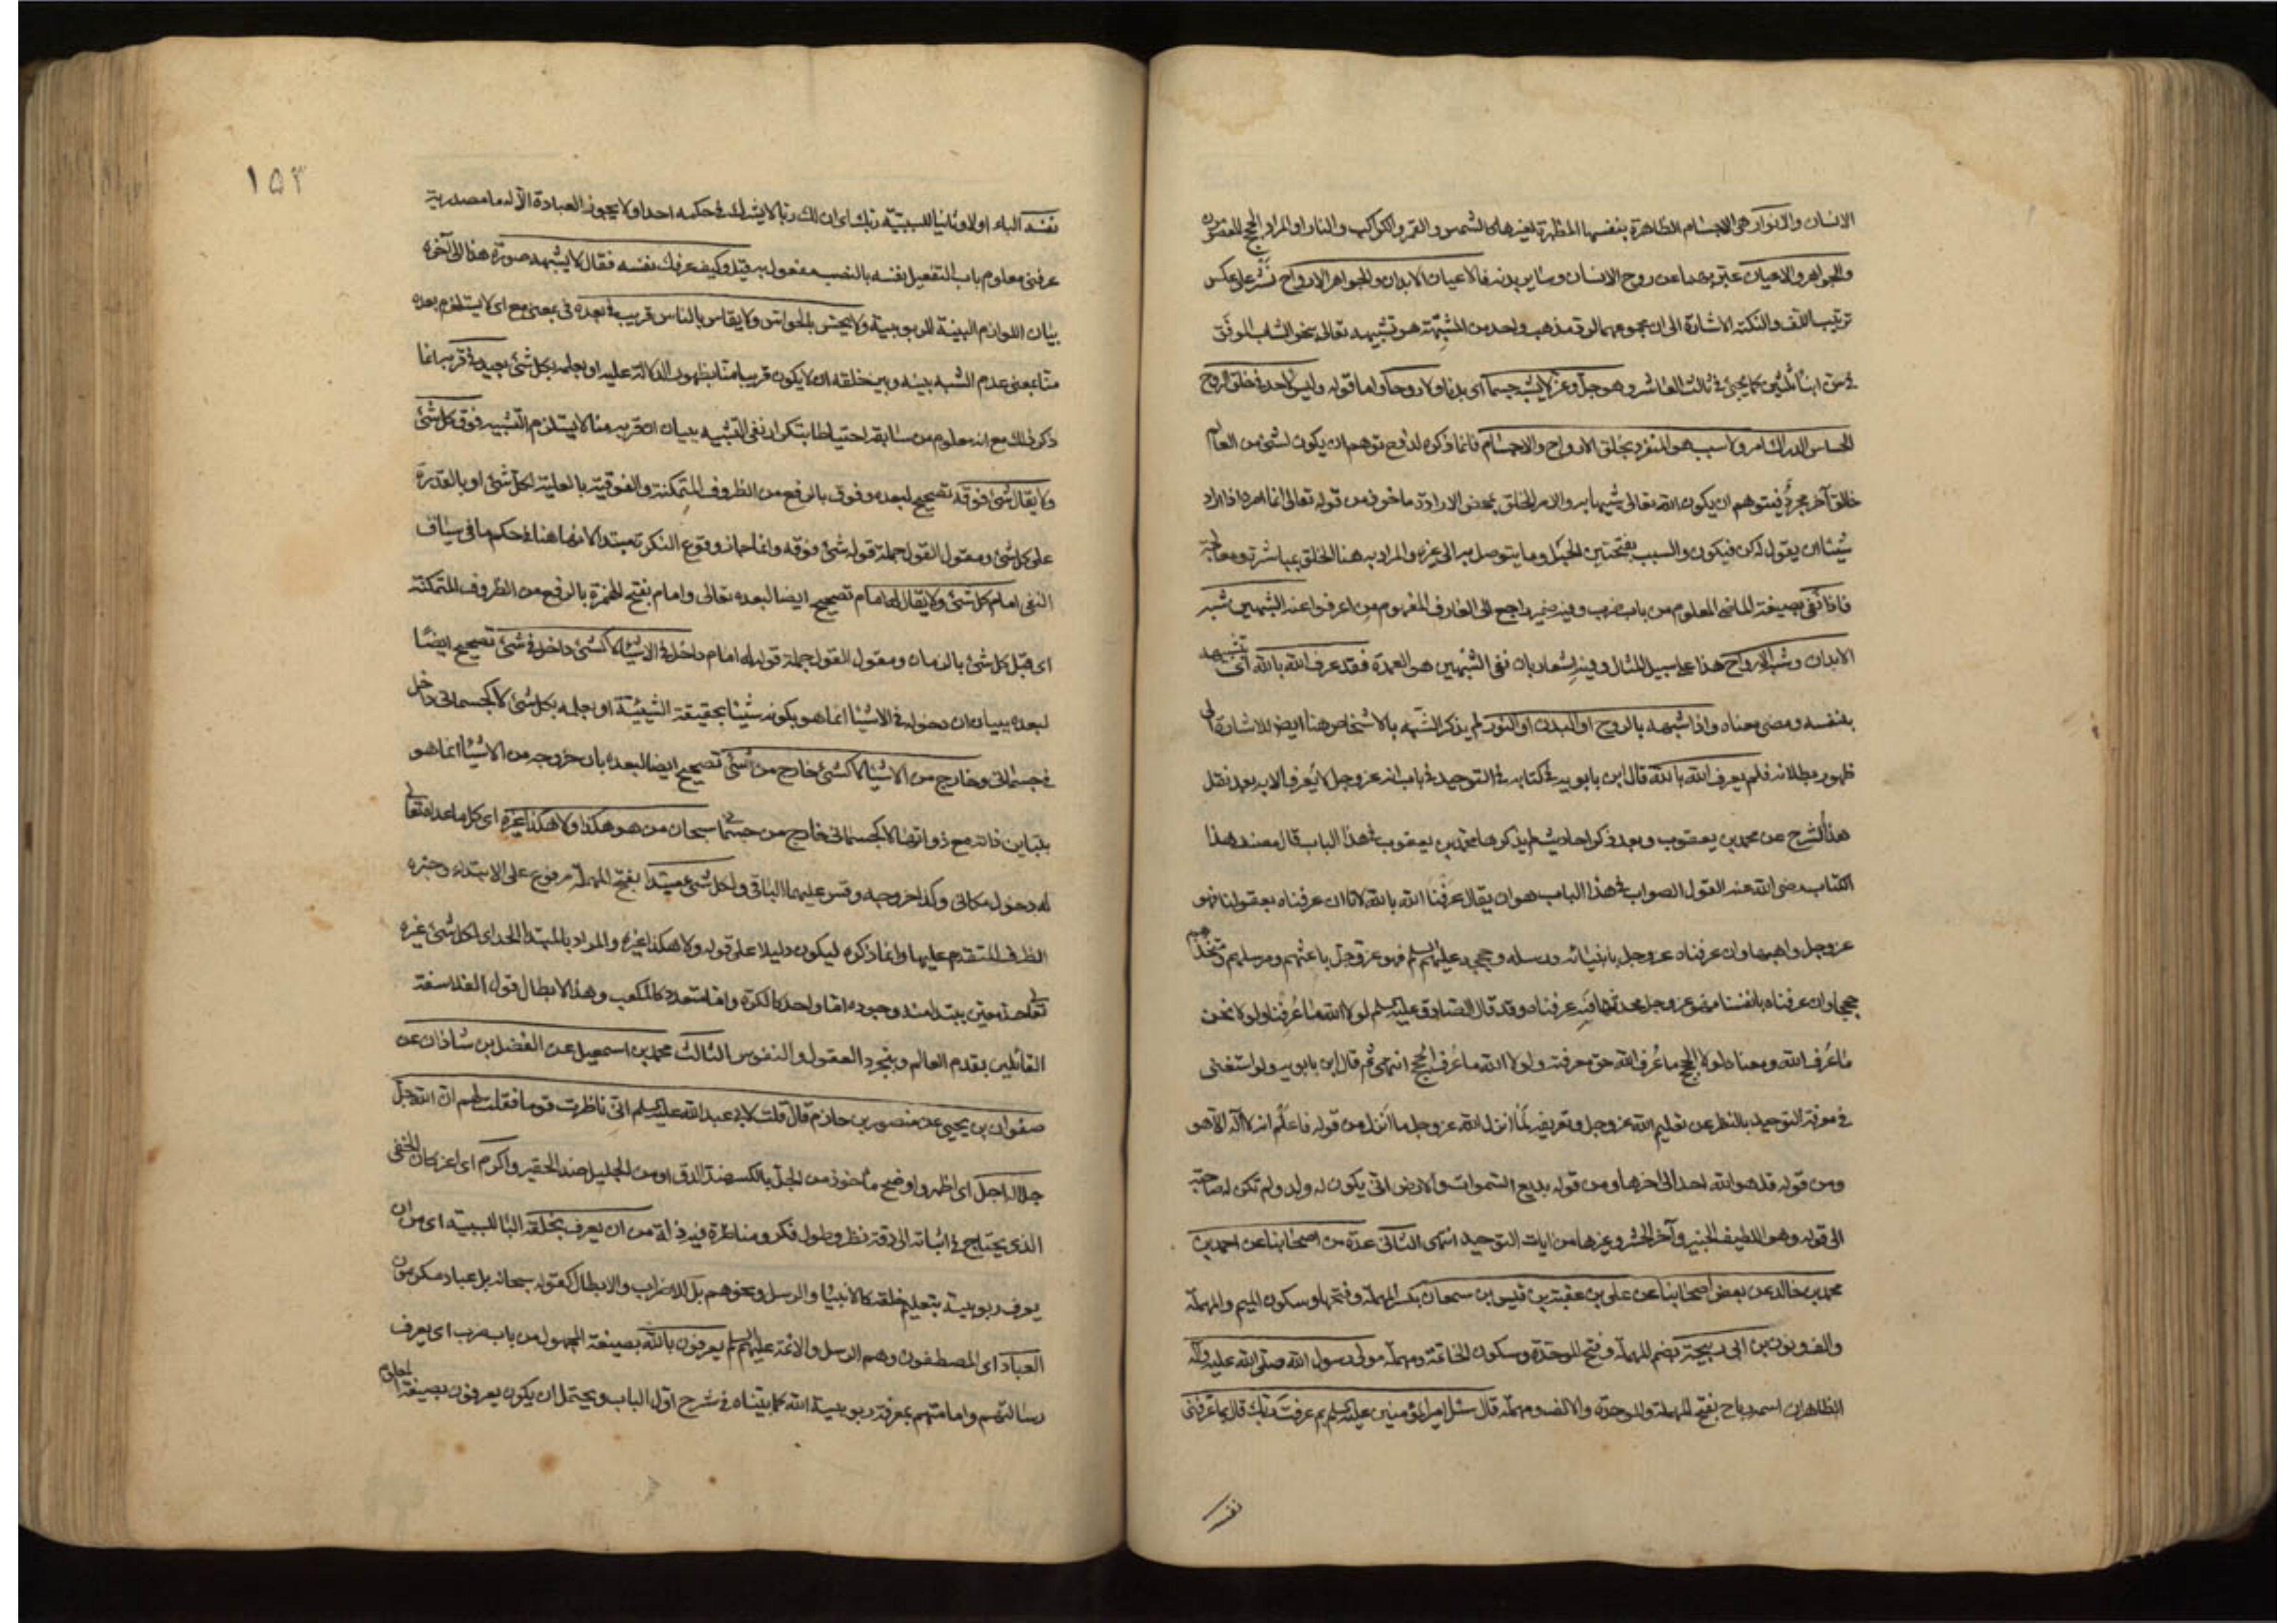 الانسان والانوار هى الاجسام الظاهرة بنفسها المظهرة لغيرها كالشمس والقمر والكواكب والنار او المراد الحجج المعصومون
والجواهر والاعيان عبّر بهما عن روح الانسان وساير بدنه فالاعيان الابدان والجواهر الارواح نشر على عكس
ترتيب اللف والنكتة الاشارة الى ان مجموعهما لوقت مذهب واحد من المشبّهة هو تشبيهه تعالى بنحو الشاب الموفّق
فى سنّ ابناء ثلثين كما يجئ فى ثالث العاشر وهو جلّ وعزّ لا يشبه جسما اى بدنا ولا روحا واما قوله وليس لاحد فى خلق الروح
الحساس الدراك امر ولا سبب هو المتفرد بخلق الارواح والاجسام فانما ذكره لدفع توهم ان يكون لشئ من العالم
خالق آخر مجرّد فيتوهم ان يكون الله تعالى شبيها به والامر الخلق بمحض الارادة ماخوذ من قوله تعالى انما امره اذا اراد
شيئا ان يقول له كن فيكون والسبب بفتحتين الحبل وما يتوصل به الى غيره والمراد به هنا الخلق بمباشرة ومعالجة
فاذا نفى بصيغة الماضى المعلوم من باب ضرب وفيه ضمير راجع الى العارف المفهوم من اعرفوا عنه الشبهين شبه
الابدان وشبه الارواح هذا على سبيل المثال وفيه اشعار بان نفى الشبهين هو العمدة فقد عرف الله بالله اى تشبيهه
بنفسه ومضى معناه واذا شبهه بالروح او البدن او النور لم يذكر الشبه بالاشخاص هنا ايضا للاشارة الى
ظهور بطلانه فلم يعرف الله بالله قال ابن بابويه فى كتابه فى التوحيد فى باب انه عز وجل لا يُعرف الا به بعد نقل
هذا الشرح عن محمد بن يعقوب وبعد ذكر احاديث لم يذكرها محمد بن يعقوب فى هذا الباب قال مصنف هذا
الكتاب رضى الله عنه القول الصواب فى هذا الباب هو ان يقال عرفنا الله بالله لانا ان عرفناه بعقولنا فهو
عز وجل واهبها وان عرفناه عز وجل بانبيائه ورسله وحججه عليهم السلم فهو عز وجل باعثهم ومرسلهم ومتخذهم
حججا وان عرفناه بانفسنا فهو عز وجل محدثها فبه عرفناه وقد قال الصادق عليه السلم لولا الله ما عُرفنا ولولا نحن
ما عُرف الله ومعناه لولا الحجج ما عُرف الله حق معرفته ولولا الله ما عُرف الحجج انتهى ثم قال ابن بابويه ولو استغنى
فى معرفة التوحيد بالنظر عن تعليم الله عز وجل وتعريفه لَما انزل الله عز وجل ما انزل من قوله فاعلم انه لا اله الا هو
ومن قوله قل هو الله احد الى آخرها ومن قوله بديع السموات والارض انى يكون له ولد ولم تكن له صاحبة
الى قوله وهو اللطيف الخبير وآخر الحشر وغيرها من ايات التوحيد انتهى الثانى عدّة من اصحابنا عن احمد بن
محمد بن خالد عن بعض اصحابنا عن على بن عقبة بن قيس بن سمعان بكسر المهملة وفتحها وسكون الميم والمهملة
والف ونون بن ابى ربيحة بضم المهملة وفتح الموحّدة وسكون الخاتمة ومهملة مولى رسول الله صلى الله عليه وآله
الظاهر ان اسمه رباح بفتح المهملة والموحّدة والالف ومهملة قال سئل امير المؤمنين عليه السلم بم عرفت ربّك قال بما عرّفنى
نفسه
١٥٣
نفسه الباء اولا وثانيا للسببيّة ربّك اى ان لك ربّا لا يشرك فى حكمه احدا ولا يجوز العبادة الّا له ما مصدريّة
عرفنى معلوم باب التفعيل نفسه بالنصب مفعول به قيل وكيف عرفك نفسه فقال لا يشبهه صورة هذا الى آخره
بيان اللوازم البيّنة للربوبيّة ولا يحسّ بالحواسّ ولا يقاس بالناس قريب فى بعده فى بمعنى مع اى لا يستلزم بعده
منّا بمعنى عدم الشبه بينه وبين خلقه ان لا يكون قريبا منّا بظهور الدلالة عليه او بعلمه بكل شئ بعيد فى قربه انما
ذكر ذلك مع انه معلوم من سابقه احتياطا بتكرار نفى التشبيه ببيان ان قربه منّا لا يستلزم التشبيه فوق كل شئ
ولا يقال شئ فوقه تصحيح لبعده وفوق بالرفع من الظروف المتمكنة والفوقيّة بالعليّة لكل شئ او بالقدرة
على كل شئ ومقول القول جملة قوله شئ فوقه وانما جاز وقوع النكرة مبتدا لانها هنا فى حكم ما فى سياق
النفى امام كل شئ ولا يقال له امام تصحيح ايضا لبعده تعالى وامام بفتح الهمزة بالرفع من الظروف المتمكنة
اى قبل كل شئ بالزمان ومقول القول جملة قوله له امام داخل فى الاشياء لا كشئ داخل فى شئ تصحيح ايضًا
لبعده ببيان ان دخوله فى الاشياء انما هو بكونه شيئا بحقيقة الشيئيّة او بعلمه بكل شئ لا كجسمانى داخل
فى جسمانى وخارج من الاشياء لا كشئ خارج من شئ تصحيح ايضا لبعده بان خروجه من الاشياء انما هو
بتباين ذاته مع ذواتها لا كجسمانى خارج من جسمانى سبحان من هو هكذا ولا هكذا غيره اى كل ما عداه تعالى
له دخول مكانى وكذا خروجه وقس عليهما الباقى ولكل شئ مبتدا بفتح المهملة مرفوع على الابتداء وخبره
الظرف المتقدم عليها وانما ذكره ليكون دليلا على قوله ولا هكذا غيره والمراد بالمبتدا الحد اى لكل شئ غيره
تعالى حد معين يبتدا منه وجوده اما واحد كالكرة واما متعدد كالمكعب وهذا لابطال قول الفلاسفة
القائلين بقدم العالم وبتجرد العقول والنفوس الثالث محمد بن اسمعيل عن الفضل بن شاذان عن
صفوان بن يحيى عن منصور بن حازم قال قلت لابى عبد الله عليه السلم انى ناظرت قوما فقلت لهم ان الله جل
جلاله اجل اى اظهر واوضح ماخوذ من الجلّ بالكسر ضدّ الدق او من الجليل ضد الحقير واكرم اى اعز كان الخفى
الذى يحتاج فى اثباته الى دقة نظر وطول فكر ومناظرة فيه ذلة من ان يعرف بخلقه الباء للسببيّة اى من ان
يعرف ربوبيته بتعليم خلقه كالانبياء والرسل ونحوهم بل للاضراب والابطال كقوله سبحانه بل عباد مكرمون
العباد اى المصطفون وهم الرسل والائمة عليهم السلم يعرفون بالله بصيغة المجهول من باب ضرب اى يعرف
رسالتهم وامامتهم بمعرفة ربوبيّة الله كما بيّناه فى شرح اوّل الباب ويحتمل ان يكون يعرفون بصيغة المعلوم